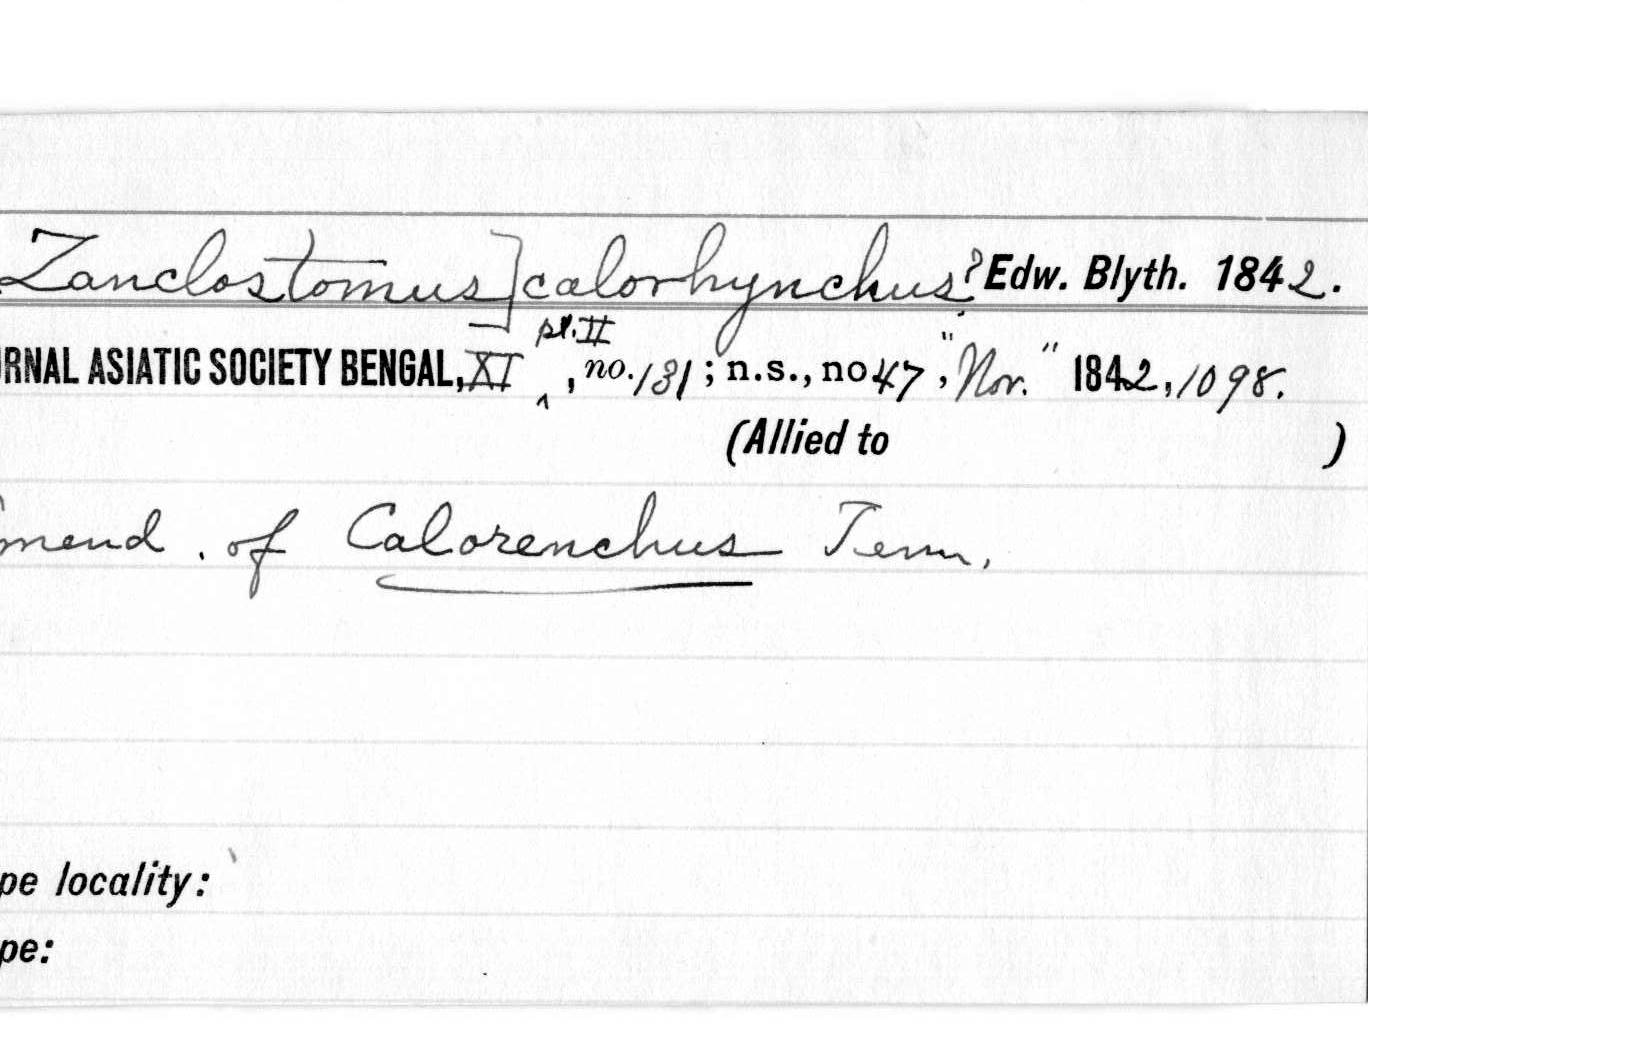 Zanclostomus] calorhynchus? Edw. Blyth. 1842.
pt. II
RNAL ASIATIC SOCIETY BENGAL, XI ^, no. 131; n.s., no 47, "Nov." 1842, 1098.
(Allied to )
mend. of Calorenchus Tem.
pe locality:
pe: